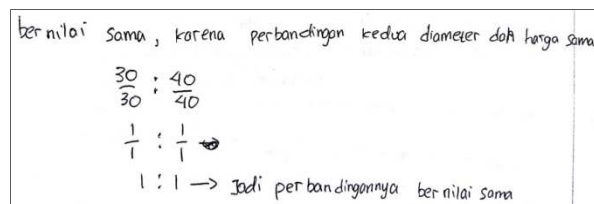 bernilai sama, karena perbandingan kedua diameter dan harga sama
30/30 : 40/40
1/1 : 1/1
1 : 1 → Jadi perbandingannya bernilai sama